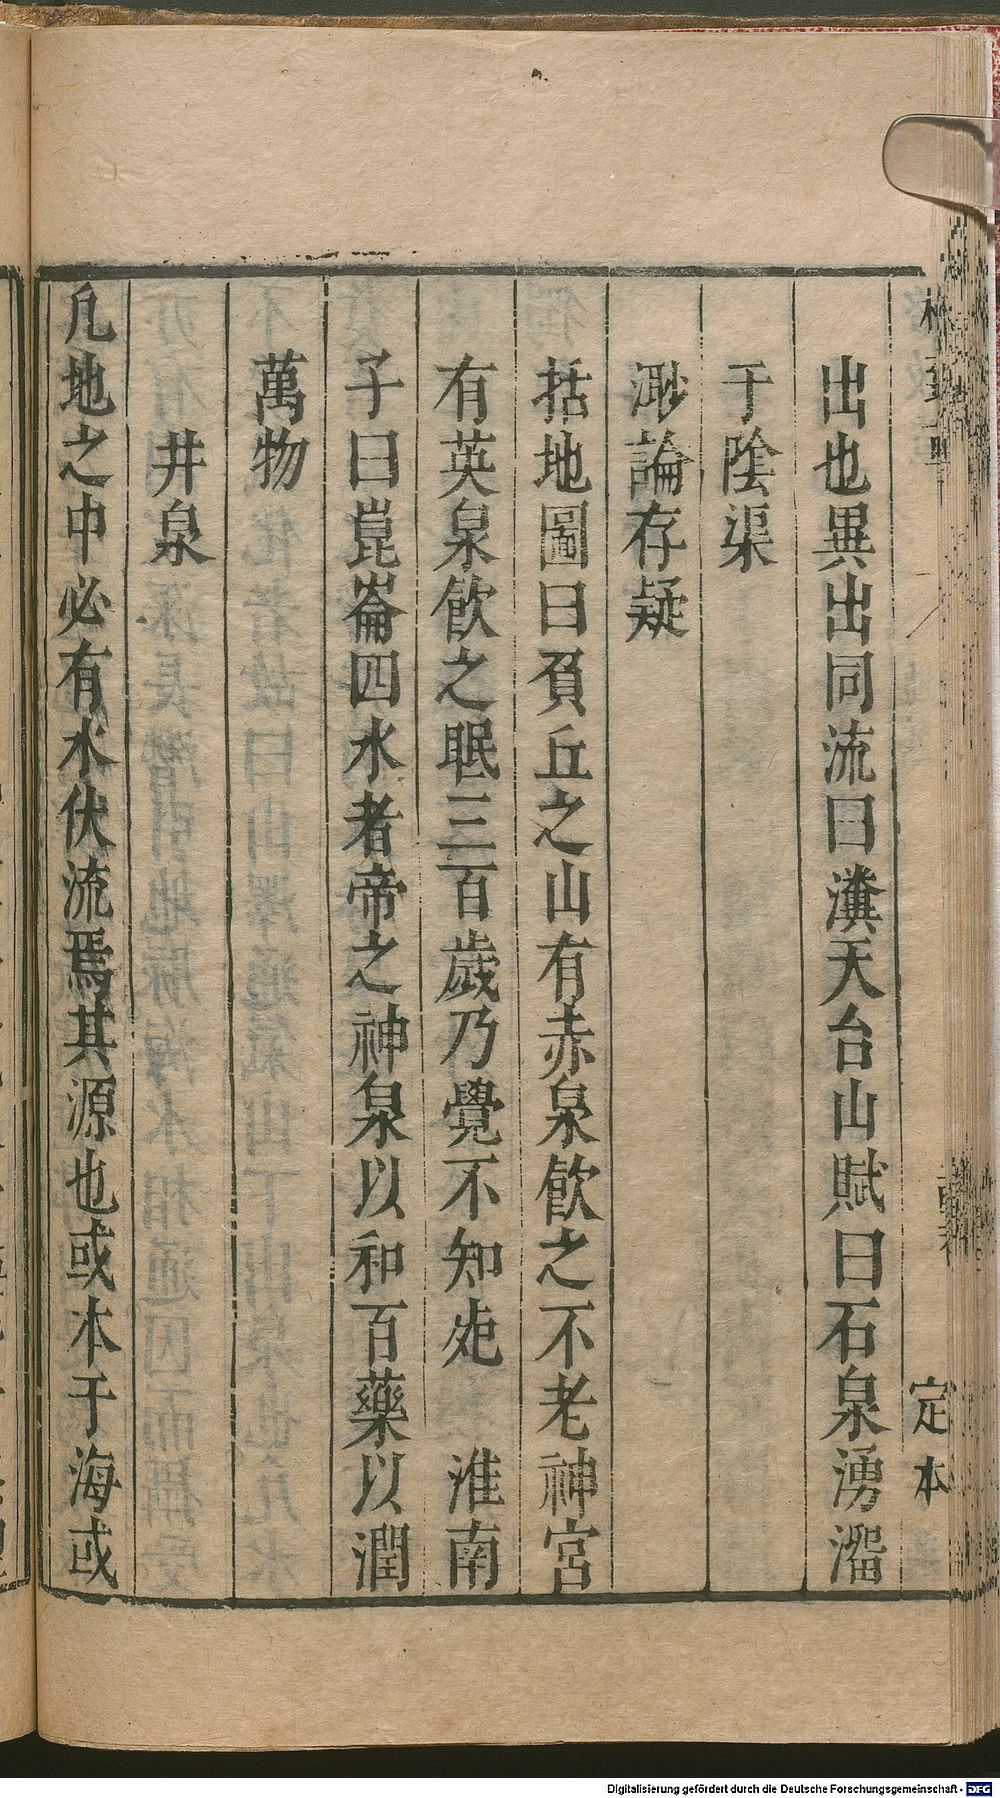 出也異出同流曰瀵天台山賦曰石泉湧溜
于陰渠
渺論存疑
括地圖曰負丘之山有赤泉飲之不老神宮
有英泉飲之眠三百歲乃覺不知死 淮南
子曰崑崙四水者帝之神泉以和百藥以潤
萬物
井泉
凡地之中必有水伏流焉其源也或本于海或
定本
Digitalisierung gefördert durch die Deutsche Forschungsgemeinschaft - DFG